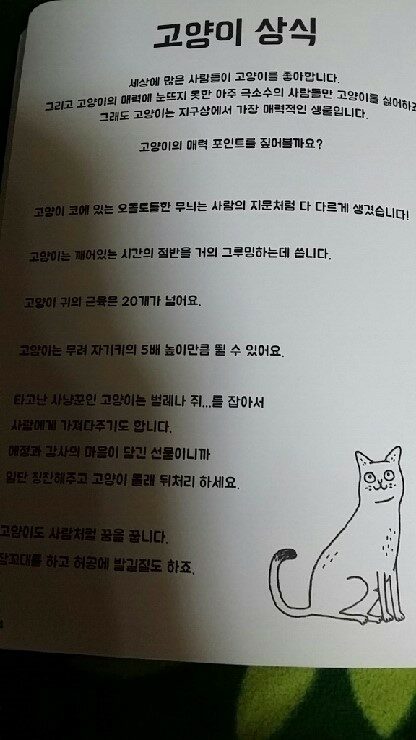 고양이 상식
세상에 많은 사람들이 고양이를 좋아합니다.
그리고 고양이의 매력에 눈뜨지 못한 아주 극소수의 사람들만 고양이를 싫어하죠
그래도 고양이는 지구상에서 가장 매력적인 생물입니다.
고양이의 매력 포인트를 짚어볼까요?
고양이 코에 있는 오돌토돌한 무늬는 사람의 지문처럼 다 다르게 생겼습니다!
고양이는 깨어있는 시간의 절반을 거의 그루밍하는데 씁니다.
고양이 귀의 근육은 20개가 넘어요.
고양이는 무려 자기키의 5배 높이만큼 뛸 수 있어요.
타고난 사냥꾼인 고양이는 벌레나 쥐...를 잡아서
사람에게 가져다주기도 합니다.
애정과 감사의 마음이 담긴 선물이니까
일단 칭찬해주고 고양이 몰래 뒤처리 하세요.
고양이도 사람처럼 꿈을 꿉니다.
잠꼬대를 하고 허공에 발길질도 하죠.